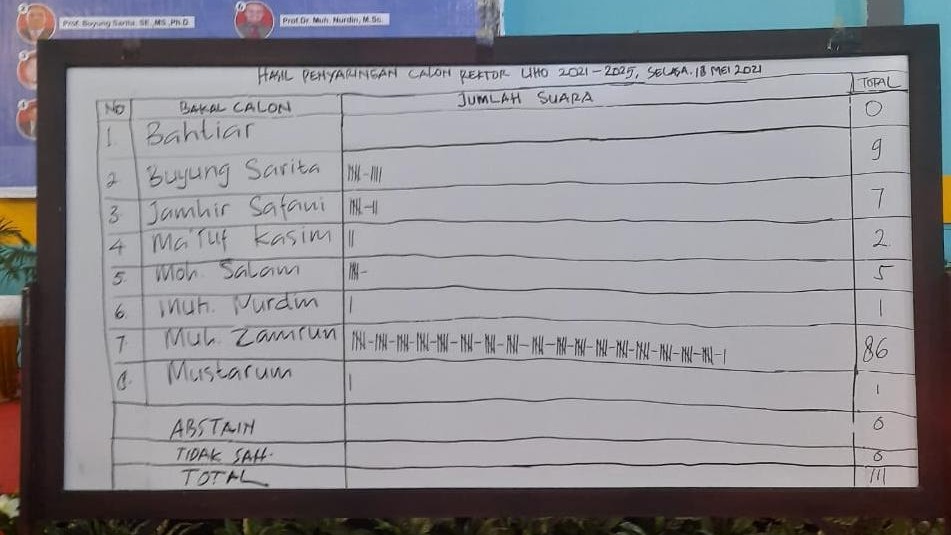 Prof. Buyung Sarita, SE.,MS.,Ph.D
Prof.Dr. Muh. Nurdin, M.Sc.
HASIL PENYARINGAN CALON REKTOR UHO 2021-2025, SELASA, 18 MEI 2021
NO BAKAL CALON JUMLAH SUARA TOTAL
1. Bahtiar 0
2. Buyung Sarita 9
3. Jamhir Safani 7
4 Ma'ruf Kasim 2
5. Moh. Salam 5
6. Muh. Nurdin 1
7. Muh. Zamrun 86
8. Mustarum 1
ABSTAIN 0
TIDAK SAH. 0
TOTAL 111